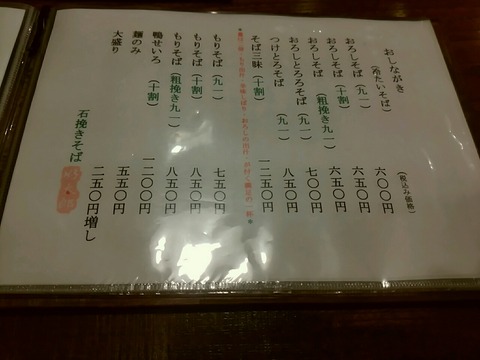 おしながき
(冷たいそば) (税込み価格)
おろしそば(九一) 六〇〇円
おろしそば(十割) 六五〇円
おろしそば(粗挽き九一) 六五〇円
おろしとろろそば(九一) 七〇〇円
つけとろそば(九一) 八五〇円
そば三昧(十割) 一二五〇円
もりそば(九一) 七五〇円
もりそば(十割) 八五〇円
もりそば(粗挽き九一) 八五〇円
鴨せいろ(十割) 一二〇〇円
麺のみ 五五〇円
大盛り 二五〇円増し
石挽きそば